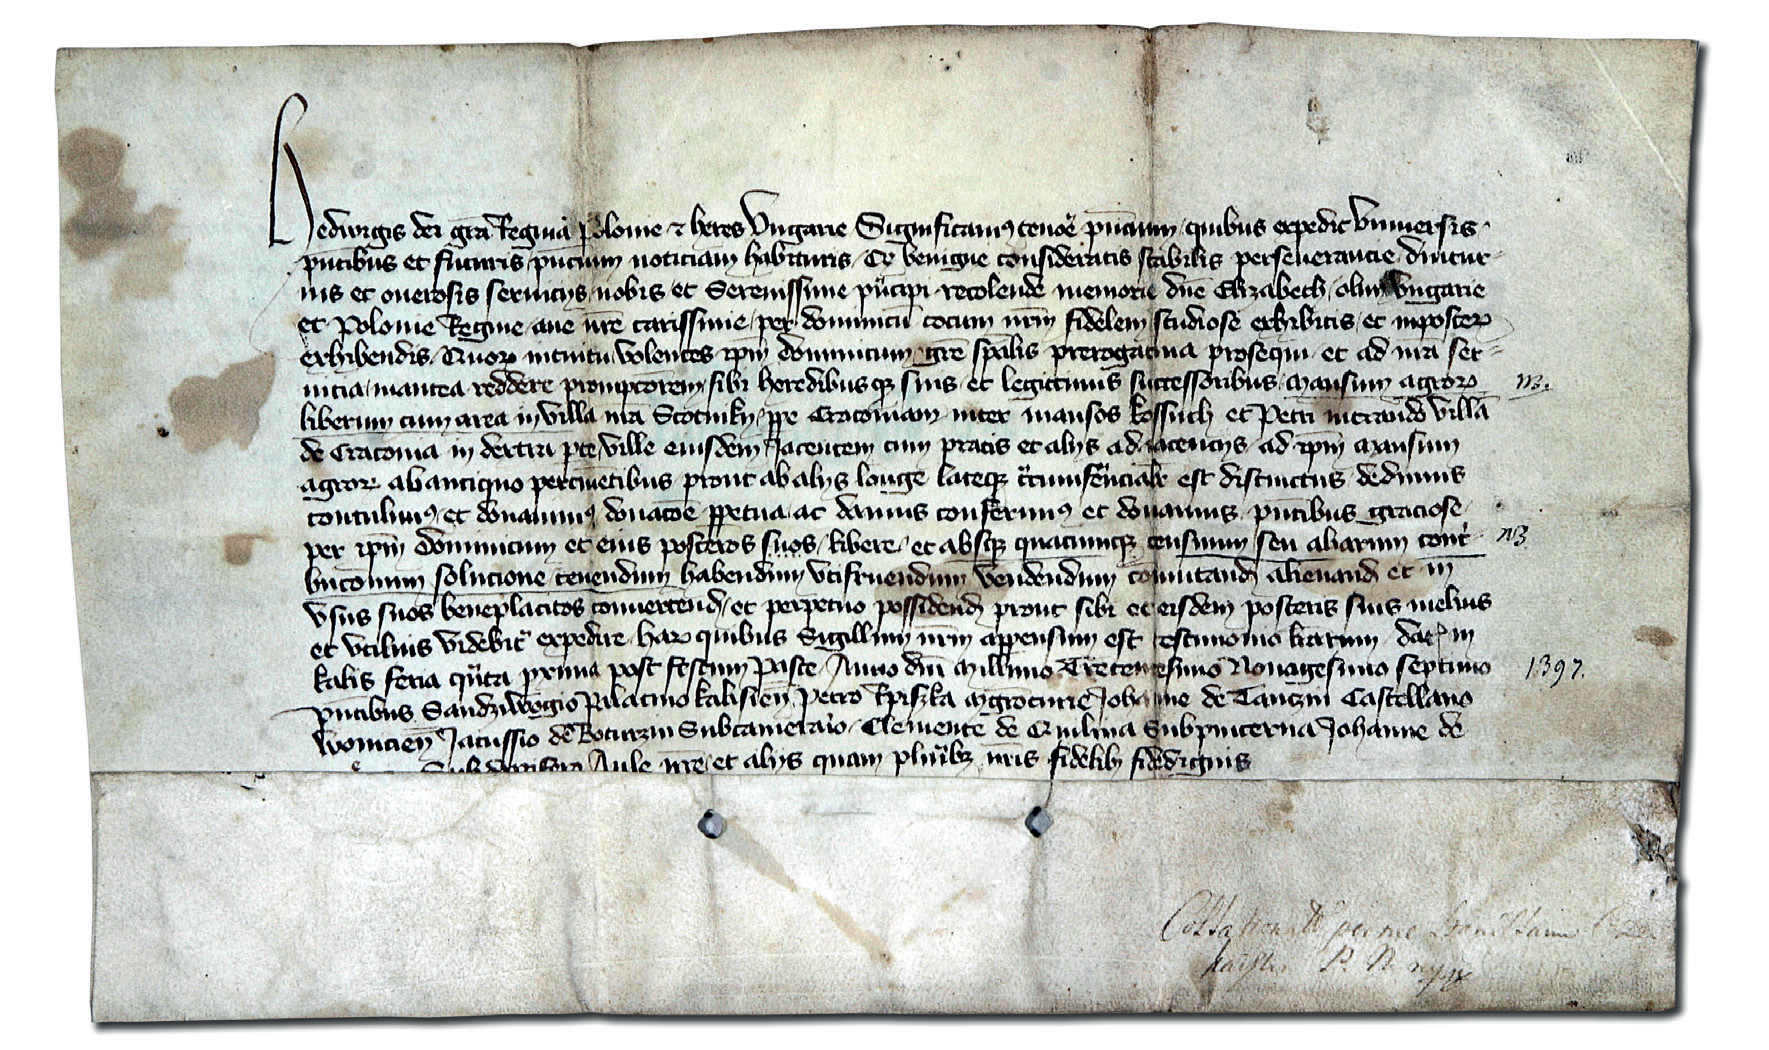 Hedwigis dei grã Regina polonie ⁊ heres Vngarie Significamꝰ tenoẽ pñcium quibus expedit Vniuersis
pñtibus et futuris pñcium noticiam habituris Qr benigne consideratis stabilis perseuerancie diutur-
nis et onerosis seruicys nobis et Serenissime pñcipi recolende memorie dñe Elizabeth olim Vngarie
et Polonie Regine aue nr̃e carissime per dominicũ cocum nrm̃ fidelem studiose exhibitis et inposteꝝ
exhibendis Quoꝝ intuitu volentes ip̃m dominicum grẽ sp̃alis prerogatiua prosequi et ad nr̃a ser-
uicia inantea reddere prompcõrem sibi heredibusqꝫ suis et legittimis successoribus Mansum agroꝝ NB.
liberum cum area in villa nr̃a Scotniky ꝓpe Cracouiam inter mansos kossuth et Petri intrando villã
de Cracouia in dextra p̃te ville eiusdem Jacentem cum pratis et alys adiacencys ad ip̃m Mansum
agroꝝ ab antiquo pertinẽtibus prout ab alys longe lateqꝫ circumferẽncialr̃ est distinctus dedimus
contulimꝰ et donauimꝰ donacõe ꝑpetua ac damus conferimꝰ et donamus pñtibus graciose
per ip̃m Dominicum et eius posteros suos libere et absqꝫ quacunqꝫ censuum seu aliarum contr̾i- NB
bucionum solucione tenendum habendum vtifruendum vendendum cõmutandũ alienandũ et in
vsus suos beneplacitos conuertendũ et perpetuo possidendũ prout sibi et eisdem posteris suis melius
et vtilius videbit̾ expedire haꝝ quibus Sigillum nrm̃ appensum est testimonio lr̃arum dat̾ in
kalis feria qñta pxima post festum Pasce Anno dñi Millmo Trecentesimo Nonagesimo septimo 1397.
pñtibus Sandziwogio Palatino kalisieñ Petro kpiszka Mgrõcurie Johanne de Tanczin Castellano
woiniceñ Jacussio de Boturzin Subcamerario Clemente de Quilina Subpincerna Johanne de
Aule nr̃e et alys quam plurĩbꝫ nr̃is fidelibꝫ fidedignis
per me